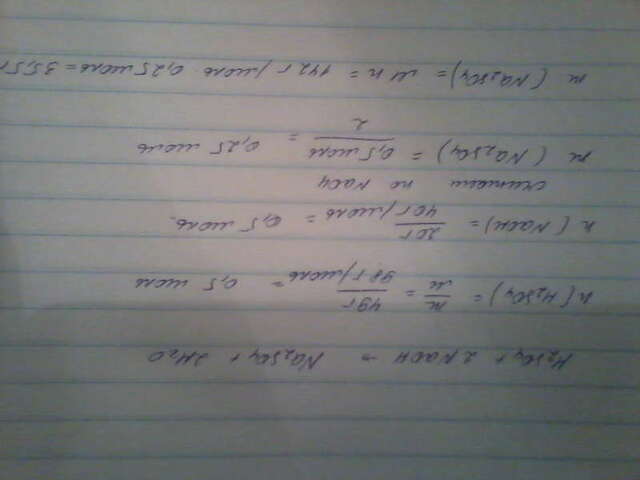 H₂SO₄ + 2NaOH → Na₂SO₄ + 2H₂O
n(H₂SO₄) = m/M = 49г/98г/моль = 0,5 моль
n(NaOH) = 20г/40г/моль = 0,5 моль.
считаем по NaOH
n(Na₂SO₄) = 0,5 моль/2 = 0,25 моль
m(Na₂SO₄) = Mn = 142 г/моль · 0,25 моль = 35,5г